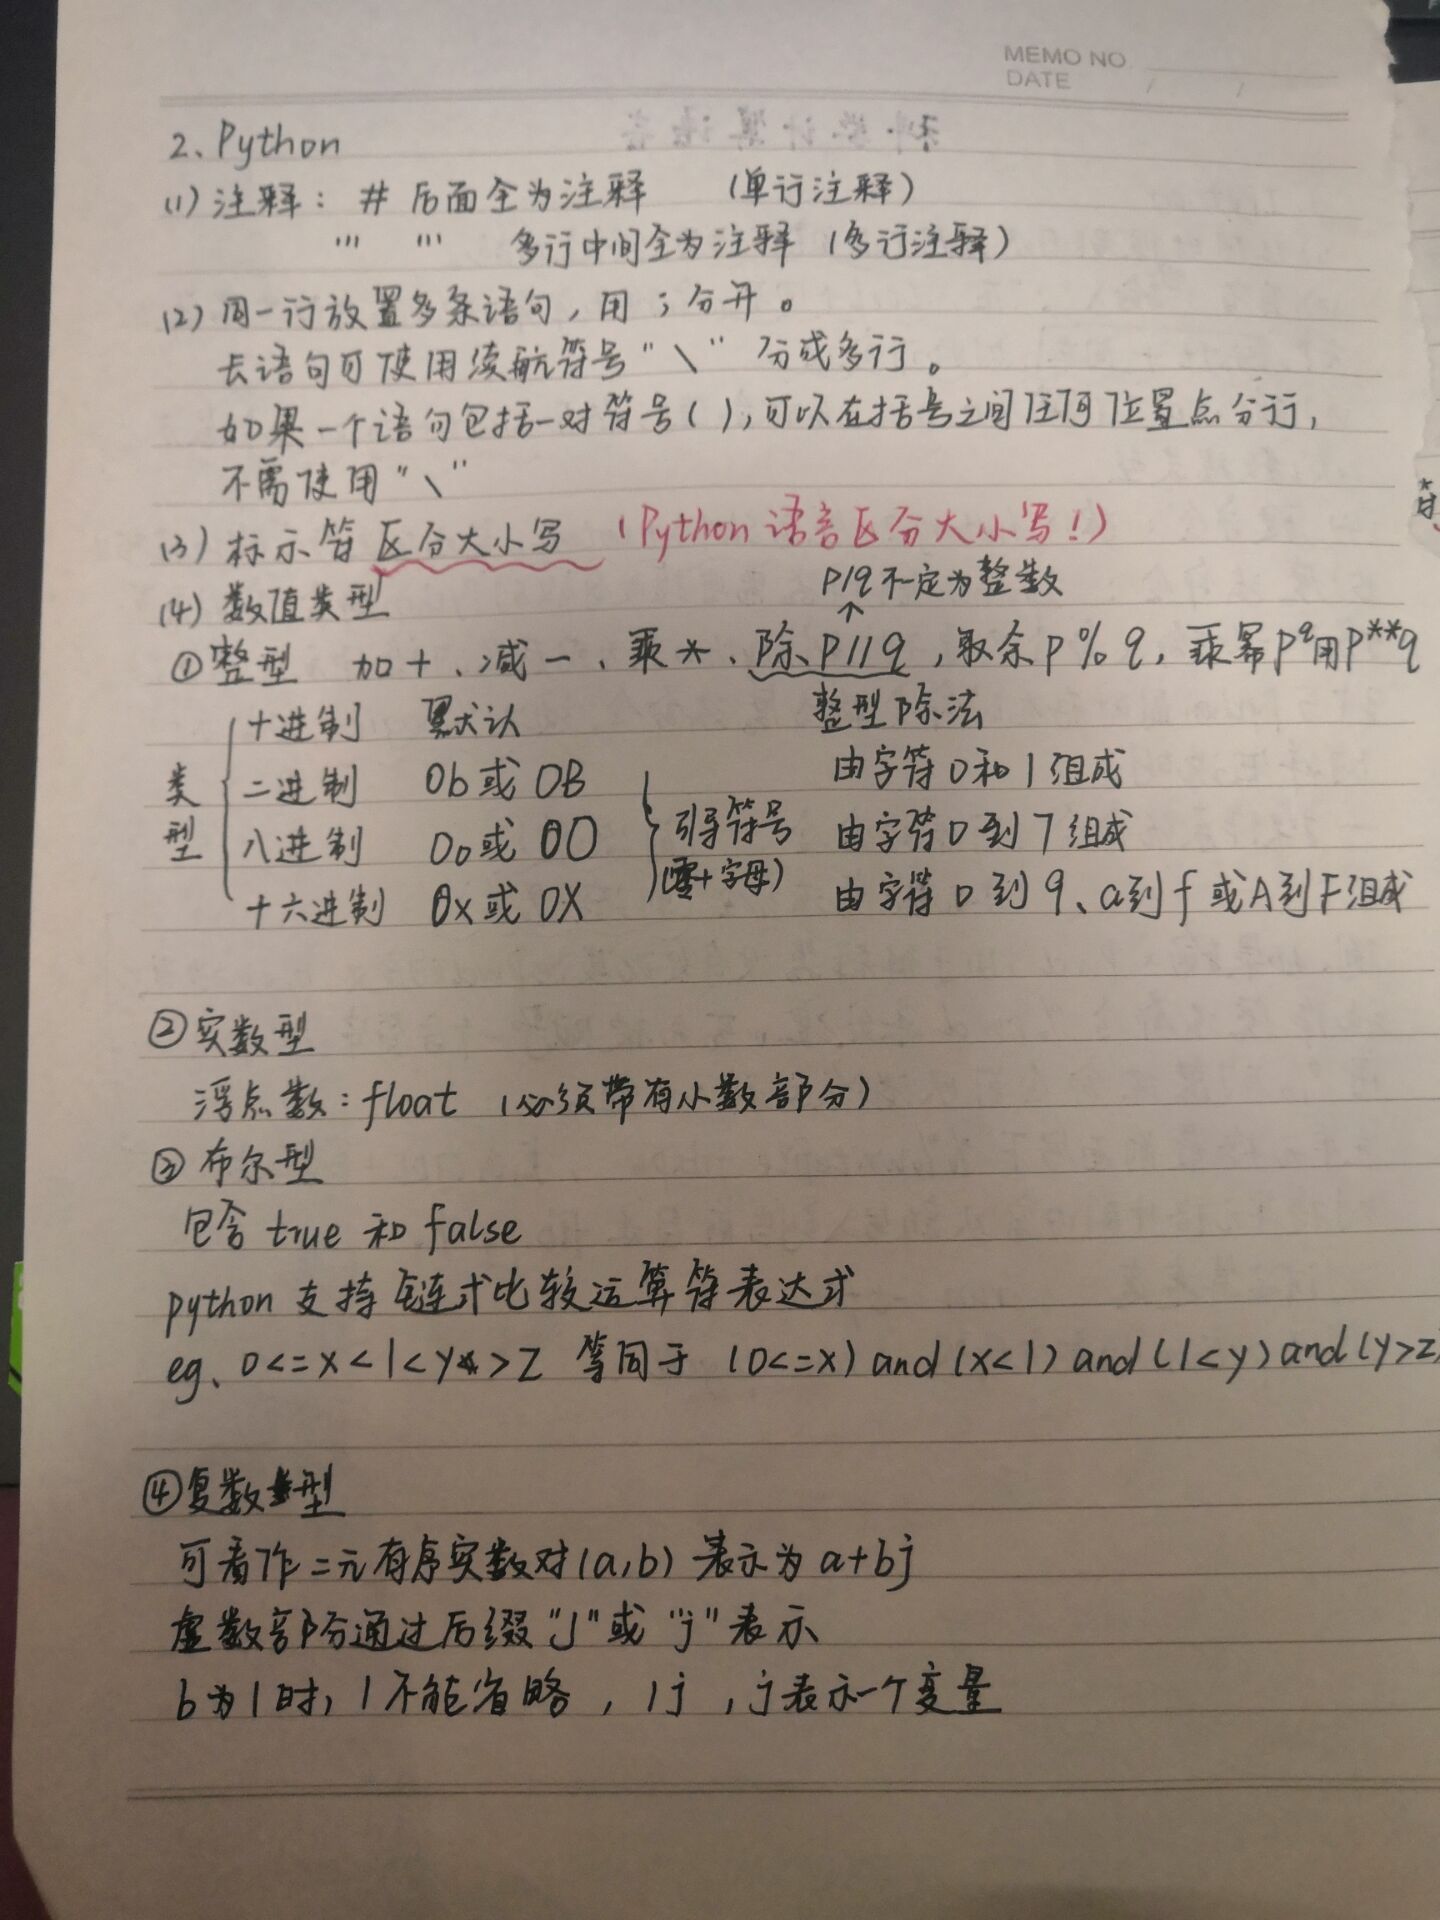 MEMO NO.
DATE / /
2、Python
(1) 注释： # 后面全为注释 （单行注释）
''' ''' 多行中间全为注释 （多行注释）
(2) 同一行放置多条语句，用 ; 分开。
长语句可使用续航符号“\” 分成多行。
如果一个语句包括一对符号( )，可以在括号之间任何位置点分行，
不需使用“\”
(3) 标示符区分大小写 （Python语言区分大小写！）
(4) 数值类型
p/q 不一定为整数
↑
①整型 加+、减－、乘*、除p//q，取余p%q，乘幂p^q用p**q
整型除法
类型
十进制 默认
二进制 0b或0B 由字符0和1组成
八进制 0o或0O 引导符号 由字符0到7组成
(零+字母)
十六进制 0x或0X 由字符0到9、a到f或A到F组成
②实数型
浮点数：float （必须带有小数部分）
③布尔型
包含true和false
python支持链式比较运算符表达式
eg、0<=x<1<y>z 等同于 (0<=x)and(x<1)and(1<y)and(y>z)
④复数型
可看作二元有序实数对(a,b) 表示为a+bj
虚数部分通过后缀“J”或“j”表示
b为1时，1不能省略，1j，j表示一个变量